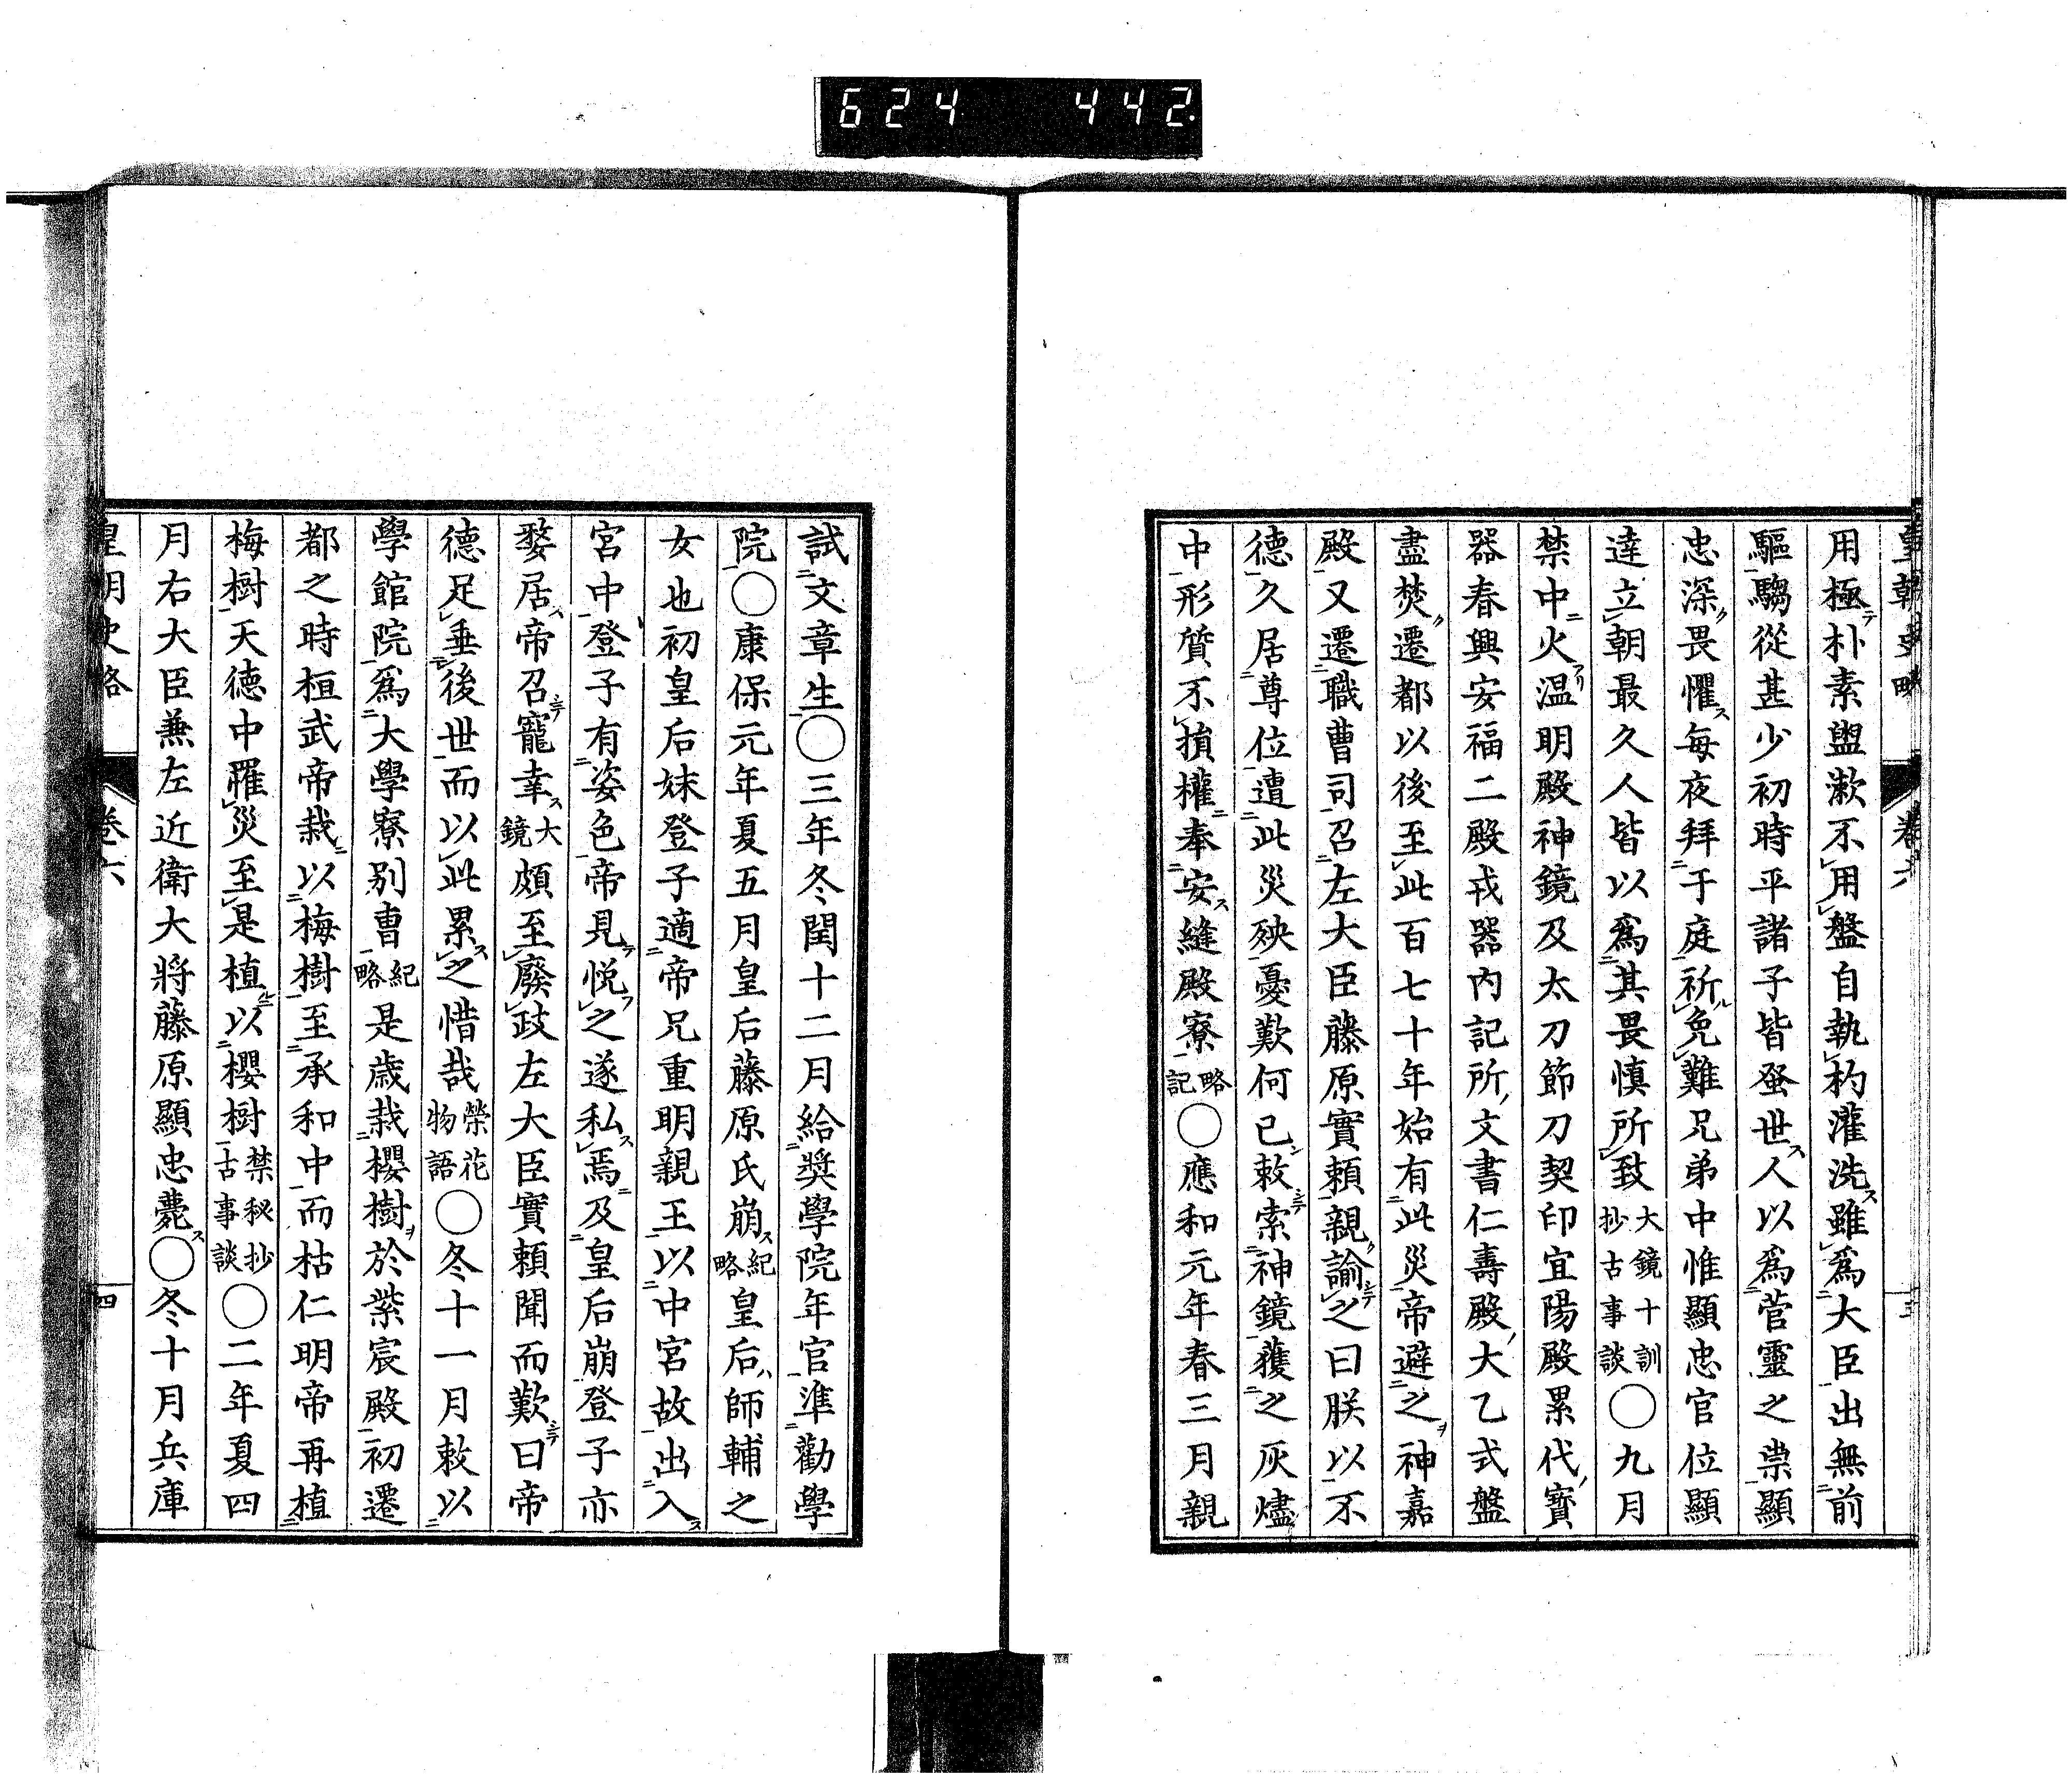 624 442.
皇朝史略 卷六 三
用極朴素盥漱不用盤自執杓灌洗雖爲大臣出無前
驅騶從甚少初時平諸子皆蚤世人以爲菅靈之祟顯
忠深畏懼每夜拜于庭祈免難兄弟中惟顯忠官位顯
達立朝最久人皆以爲其畏慎所致大鏡十訓抄古事談〇九月
禁中火温明殿神鏡及太刀節刀契印宜陽殿累代寶
器春興安福二殿戎器內記所文書仁壽殿大乙式盤
盡焚遷都以後至此百七十年始有此災帝避之神嘉
殿又遷職曹司召左大臣藤原實賴親諭之曰朕以不
德久居尊位遭此災殃憂歎何已敕索神鏡獲之灰燼
中形質不損權奉安縫殿寮略記〇應和元年春三月親
試文章生〇三年冬閏十二月給奬學院年官準勸學
院〇康保元年夏五月皇后藤原氏崩紀略皇后師輔之
女也初皇后妹登子適帝兄重明親王以中宮故出入
宮中登子有姿色帝見悦之遂私焉及皇后崩登子亦
嫠居帝召寵幸大鏡頗至廢政左大臣實賴聞而歎曰帝
德足垂後世而以此累之惜哉榮花物語〇冬十一月敕以
學館院爲大學寮別曹紀略是歲栽櫻樹於紫宸殿初遷
都之時桓武帝栽以梅樹至承和中而枯仁明帝再植
梅樹天德中罹災至是植以櫻樹禁秘抄古事談〇二年夏四
月右大臣兼左近衛大將藤原顯忠薨〇冬十月兵庫
皇朝史略 卷六 四